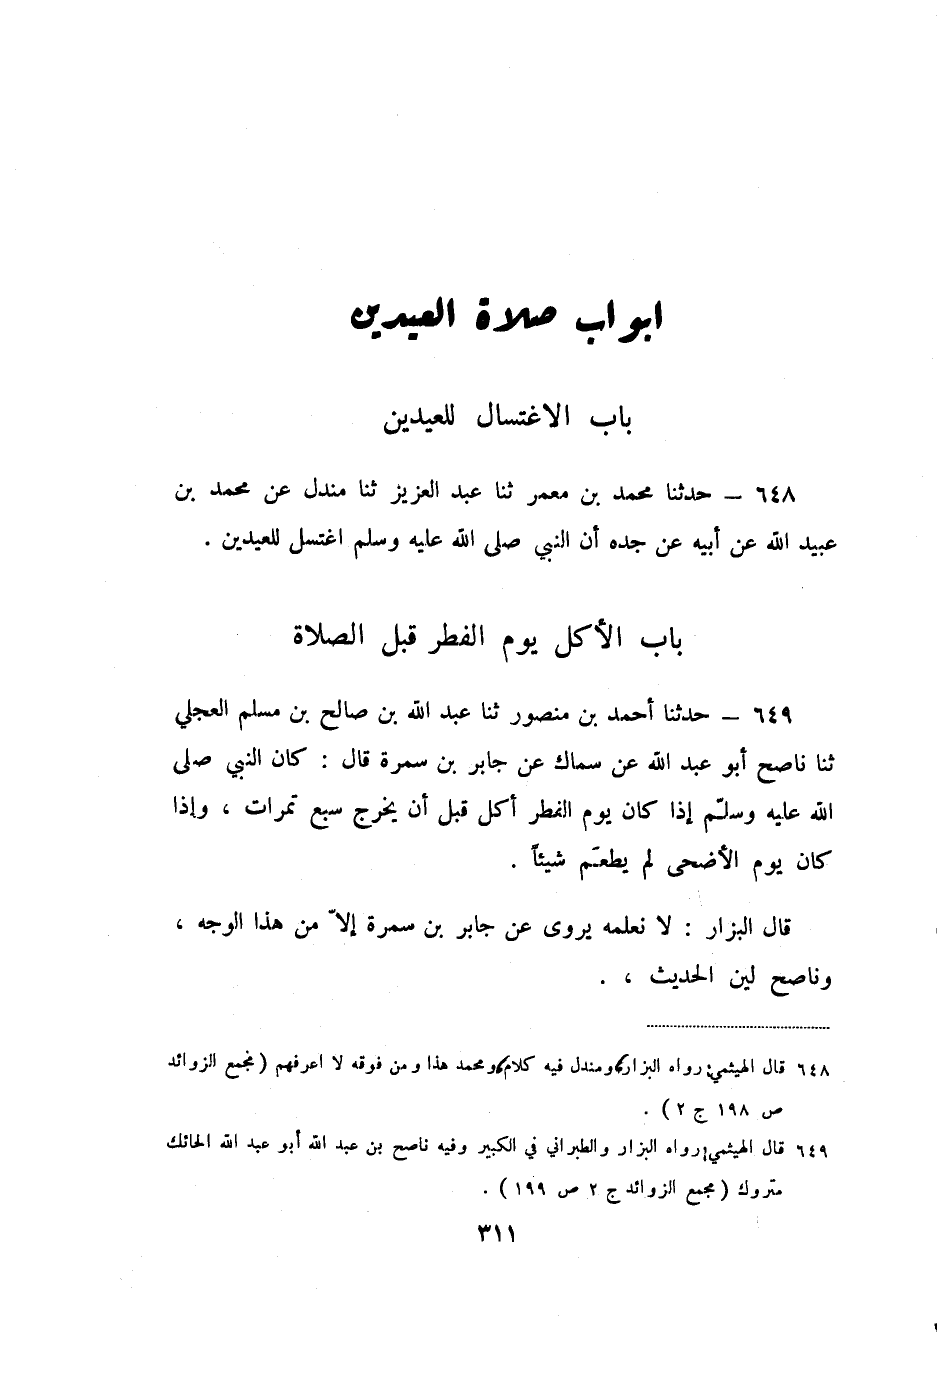 ابواب صلاة العيدين
باب الاغتسال للعيدين
٦٤٨ – حدثنا محمد بن معمر ثنا عبد العزيز ثنا مندل عن محمد بن
عبيد الله عن أبيه عن جده أن النبي صلى الله عليه وسلم اغتسل للعيدين .
باب الأكل يوم الفطر قبل الصلاة
٦٤٩ – حدثنا أحمد بن منصور ثنا عبد الله بن صالح بن مسلم العجلي
ثنا ناصح أبو عبد الله عن سماك عن جابر بن سمرة قال : كان النبي صلى
الله عليه وسلّم إذا كان يوم الفطر أكل قبل أن يخرج سبع تمرات ، وإذا
كان يوم الأضحى لم يطعَم شيئاً .
قال البزار : لا نعلمه يروى عن جابر بن سمرة إلاّ من هذا الوجه ،
وناصح لين الحديث ، .
٦٤٨ قال الهيثمي: رواه البزار، ومندل فيه كلام، ومحمد هذا ومن فوقه لا اعرفهم (مجمع الزوائد
ص ١٩٨ ج ٢) .
٦٤٩ قال الهيثمي: رواه البزار والطبراني في الكبير وفيه ناصح بن عبد الله أبو عبد الله الحائك
متروك (مجمع الزوائد ج ٢ ص ١٩٩) .
٣١١